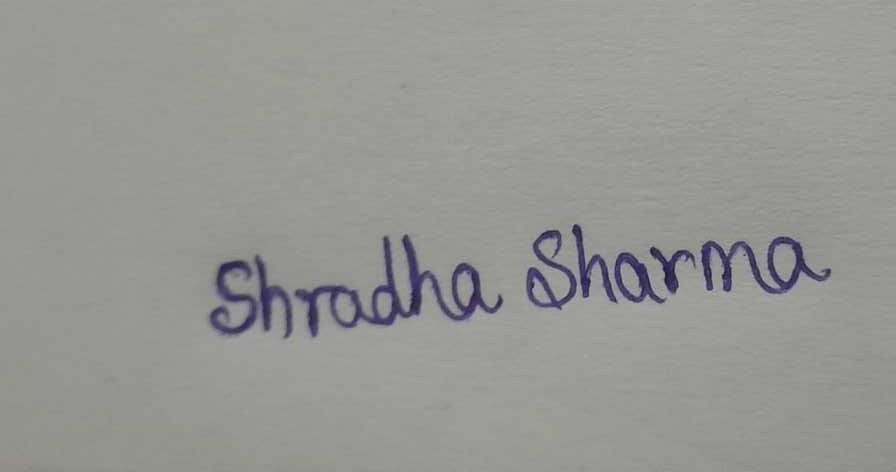 Shradha Sharma